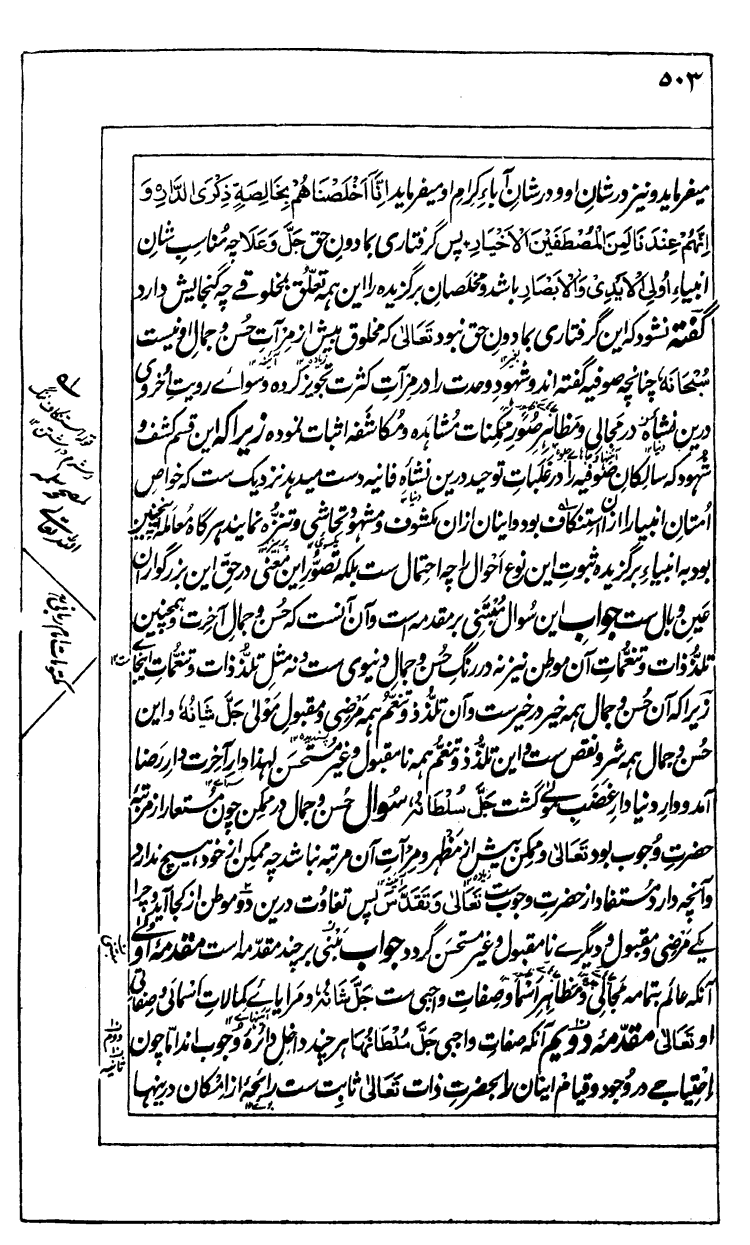 ۵۰۳
میفرماید و نیز در شانِ او و در شانِ آباءِ کرامِ او میفرماید اِنَّآ اَخْلَصْنَاهُمْ بِخَالِصَةٍ ذِكْرَى الدَّارِ وَ
اِنَّهُمْ عِنْدَنَا لَمِنَ الْمُصْطَفَيْنَ الْاَخْيَارِ پس گرفتاری بما دونِ حق جَلَّ وَعَلَا چه مُناسبِ شانِ
انبیاءِ اُولِی الْاَیْدِیْ وَالْاَبْصَارِ باشد و مخلصانِ برگزیده را این همه تعلّق بمخلوقے چه گنجایش دارد
گفته نشود که این گرفتاری بما دونِ حق نبود تَعَالٰی که مخلوق بیش از مِرْآتِ حُسن و جمالِ او نیست
سُبْحَانَهٗ چنانچه صوفیه گفته اند و شهودِ وحدت را در مِرْآتِ کثرت تجویز کرده و سواے رویتِ اُخروی
درین نشاہ در مَجالی و مَظاهرِ صُوَرِ ممکنات مُشاهده و مُکاشفه اثبات نموده زیرا که این قسم کشف و
شهود که سالکانِ صوفیه را در غَلَباتِ توحید درین نشاہِ فانیه دست میدهد نزدیک ست که خواصِ
اُمتانِ انبیا را ازان اِستنکاف بود و اینان ازان مکشوف و مشهود تحاشی و تنزّه نمایند هر گاه معامله چنین
بود به انبیاءِ برگزیده ثبوتِ این نوع اَحوال را چه احتمال ست بلکه تصوّرِ این معنی در حقِ این بزرگواران
عینِ وبال ست جواب این سُوال مُبْتَنِی بر مقدمه است و آن آنست که حُسن و جمالِ آخرت و همچنین
تلذّذات و تنعّماتِ آن موطِن نیز نه در رنگِ حُسن و جمالِ دنیوی ست و نه مثلِ تلذّذات و تنعّماتِ اینجاے
زیرا که آن حُسن و جمال همه خیر در خیر ست و آن تلذّذ و تنعّم همه مَرْضی و مقبولِ مَوْلٰی جَلَّ شَانُهٗ و این
حُسن و جمال همه شر و نقص ست و این تلذّذ و تنعّم همه نامقبول و غیر مُستَحسَن لهذا دارِ آخرت دارِ رَضا
آمد و دارِ دنیا دارِ غَضَبِ مَوْلٰے گشت جَلَّ سُلْطَانُهٗ سُوال حُسن و جمال در ممکن چون مستعار از مرتبۂ
حضرتِ وُجوب بود تَعَالٰی و ممکن بیش از مَظهَر و مِرْآتِ آن مرتبه نباشد چه ممکن از خود هیچ ندارد
و آنچه دارد مستفاد از حضرتِ وجوب ست تَعَالٰی وَتَقَدَّسَ پس تفاوت درین دو موطِن از کجا آید و چرا
یکے مَرْضی و مقبول و دیگرے نامقبول و غیر مستحسن گردد جواب مَبْنِی بر چند مقدّمه است مقدمۂ اُولٰے
آنکه عالَم بتمامه مَجالی و مَظاهرِ اَسْما و صفاتِ واجبی ست جَلَّ شَانُهٗ و مَرایاے کمالاتِ اسمائی و صفاتیِ
او تَعَالٰی مقدّمۂ دویم آنکه صفاتِ واجبی جَلَّ سُلْطَانُهَا هر چند داخلِ دائرۂ وجوب اند امّا چون
اِحتیاجے در وُجود و قیامِ اینان را بحضرتِ ذات تَعَالٰی ثابت ست رائحۂ از اِمْکان درینها
مکتوبات امام ربانی